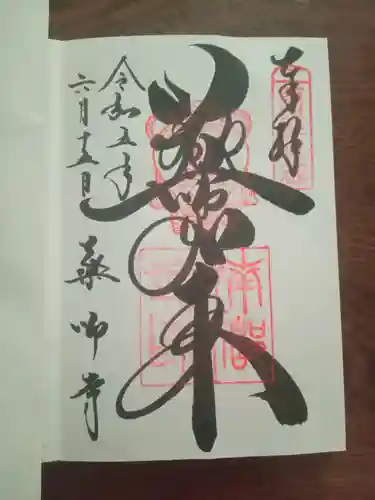 奉拝
薬師如来
令和五年
六月十五日
薬師寺